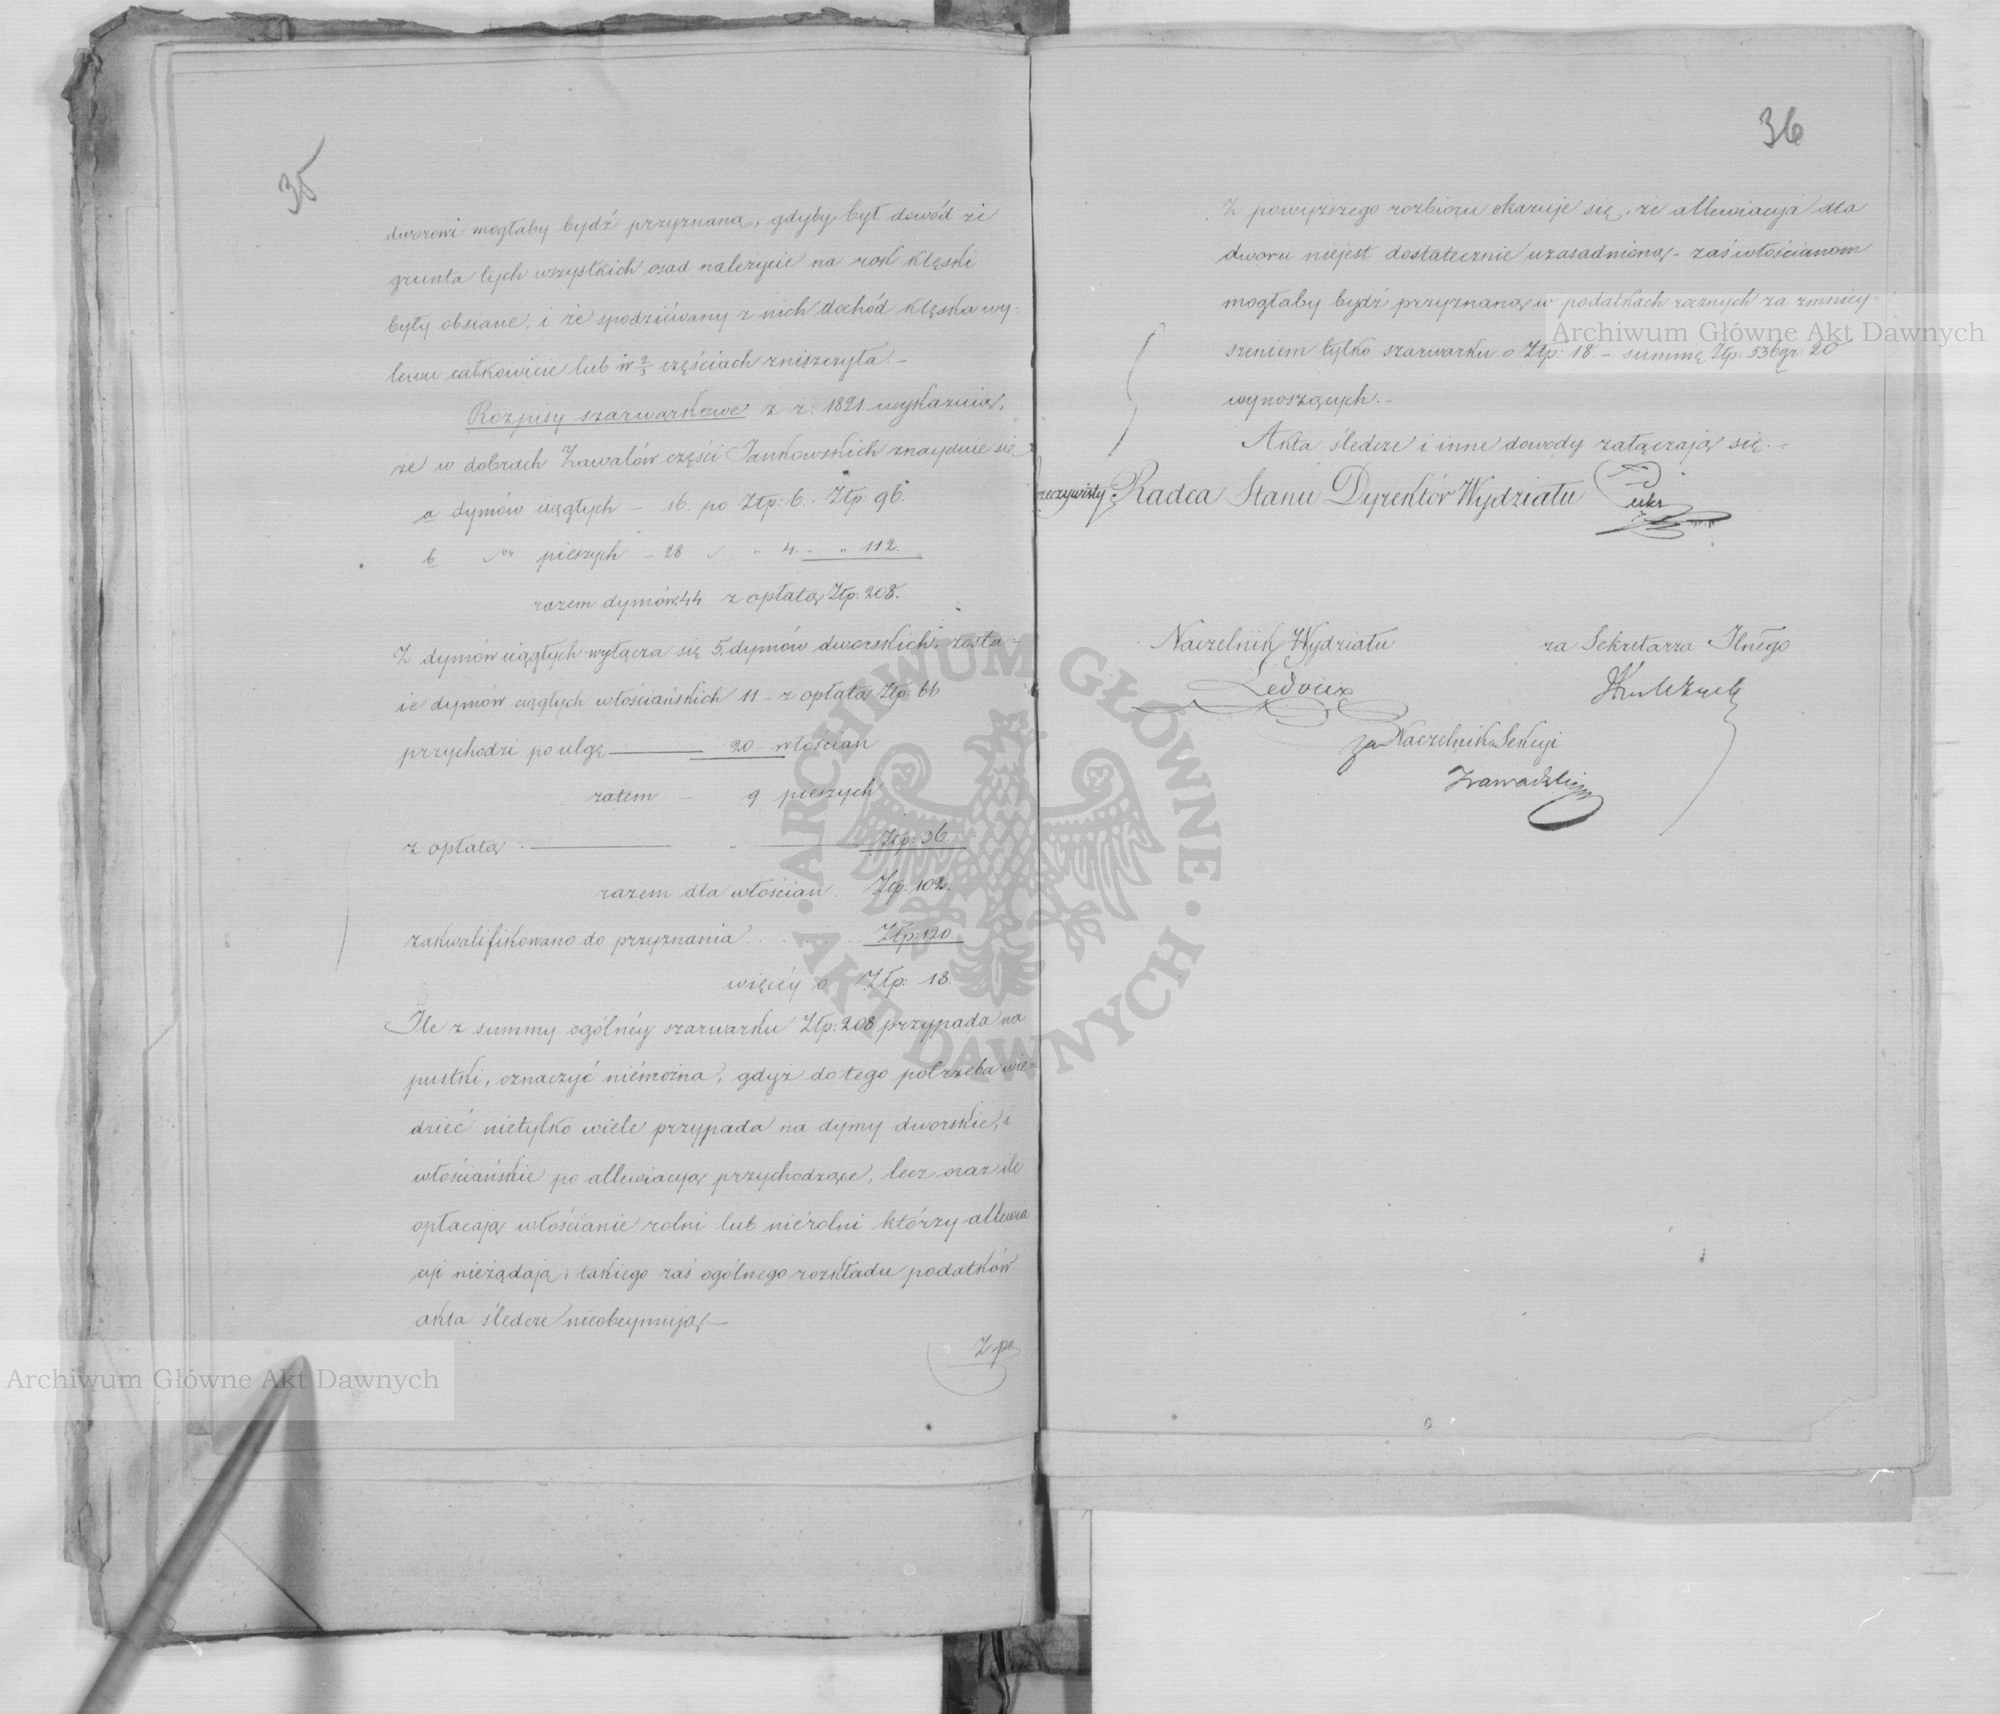 35
dworowi mogłaby bydź przyznaną, gdyby był dowód że
grunta tych wszystkich osad należycie na rok klęski
były obsiane, i że spodziéwany z nich dochód klęska wy-
lewu całkowicie lub w 2/3 częściach zniszczyła.-
Rozpisy szarwarkowe z r: 1821 wykazuią,
że w dobrach Zawalów części Jankowskich znayduie się
a dymów ciągłych - 16. po Złp: 6. Złp: 96.
b pieszych - 28 " 4. " 112.
razem dymów 44 z opłatą Złp: 208.
Z dymów ciągłych wyłącza się 5. dymów dworskich, zosta-
ie dymów ciągłych włościańskich 11 - z opłatą Złp: 66
przychodzi po ulgę 20 włościan
zatem - 9 pieszych
z opłatą Złp: 36.
razem dla włościan. Złp: 102.
zakwalifikowano do przyznania Złp: 120.
więcéy o Złp: 18.
Ile z summy ogólnéy szarwarku Złp: 208 przypada na
pustki, oznaczyć niémożna, gdyż do tego potrzeba wie-
dzieć nietylko wiele przypada na dymy dworskie, i
włościańskie po allewiacyą przychodzące, lecz oraz ile
opłacają włościanie rolni lub niérolni którzy allewia
cyi nieżądają; takiego zaś ogólnego rozkładu podatków
akta śledcze nieobeymują.-
Z po
36
Z powyższego rozbioru okazuje się, że allewiacyja dla
dworu niejest dostatecznie uzasadnioną - zaś włościanom
mogłaby bydź przyznaną w podatkach rocznych za zmniey-
szeniem tylko szarwarku o Złp: 18 - summę Złp: 536 gr: 20
wynoszących.-
Akta śledcze i inne dowody załączają się.-
rzeczywisty Radca Stanu Dyrektór Wydziału
Naczelnik Wydziału
Ledoux
za Sekretarza Jlnego
za Naczelnika Sekcyi
Archiwum Główne Akt Dawnych
Archiwum Główne Akt Dawnych
· ARCHIWUM GŁÓWNE · AKT DAWNYCH